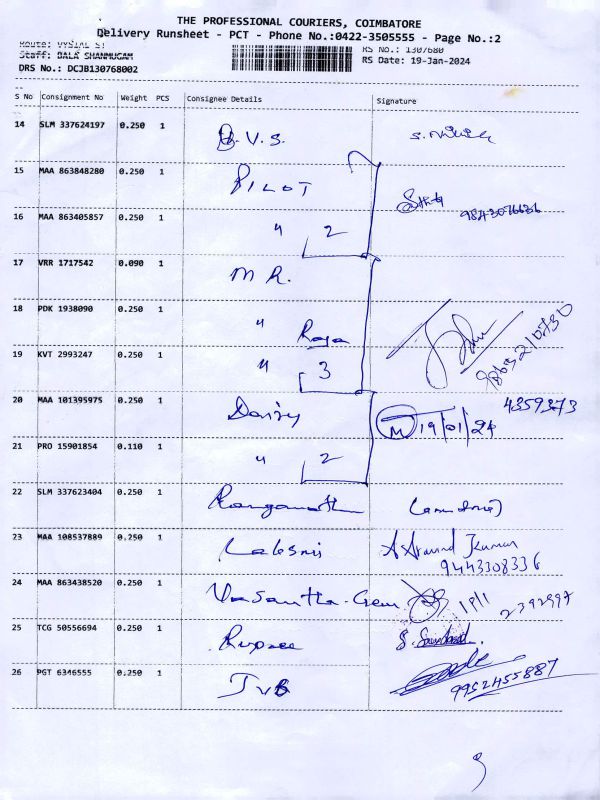 THE PROFESSIONAL COURIERS, COIMBATORE
Delivery Runsheet - PCT - Phone No.:0422-3505555 - Page No.:2
Route: VYSIAL ST RS No.: 1307680
Staff: BALA SHANMUGAM RS Date: 19-Jan-2024
DRS No.: DCJB130768002
S No Consignment No Weight PCS Consignee Details Signature
14 SLM 337624197 0.250 1 V.S.
15 MAA 863848280 0.250 1 PILOT
16 MAA 863405857 0.250 1 " 2 9843076636
17 VRR 1717542 0.090 1 M R.
18 PDK 1938090 0.250 1 " Raja
19 KVT 2993247 0.250 1 " 3 9863210730
20 MAA 101395975 0.250 1 Dairy M 19/01/24 4359373
21 PRO 15901854 0.110 1 " 2
22 SLM 337623404 0.250 1
23 MAA 108537889 0.250 1 A Aravind Kumar
9443308336
24 MAA 863438520 0.250 1 Vasantha Gem 2392997
25 TCG 50556694 0.250 1 Rupee
26 PGT 6346555 0.250 1 9952455887